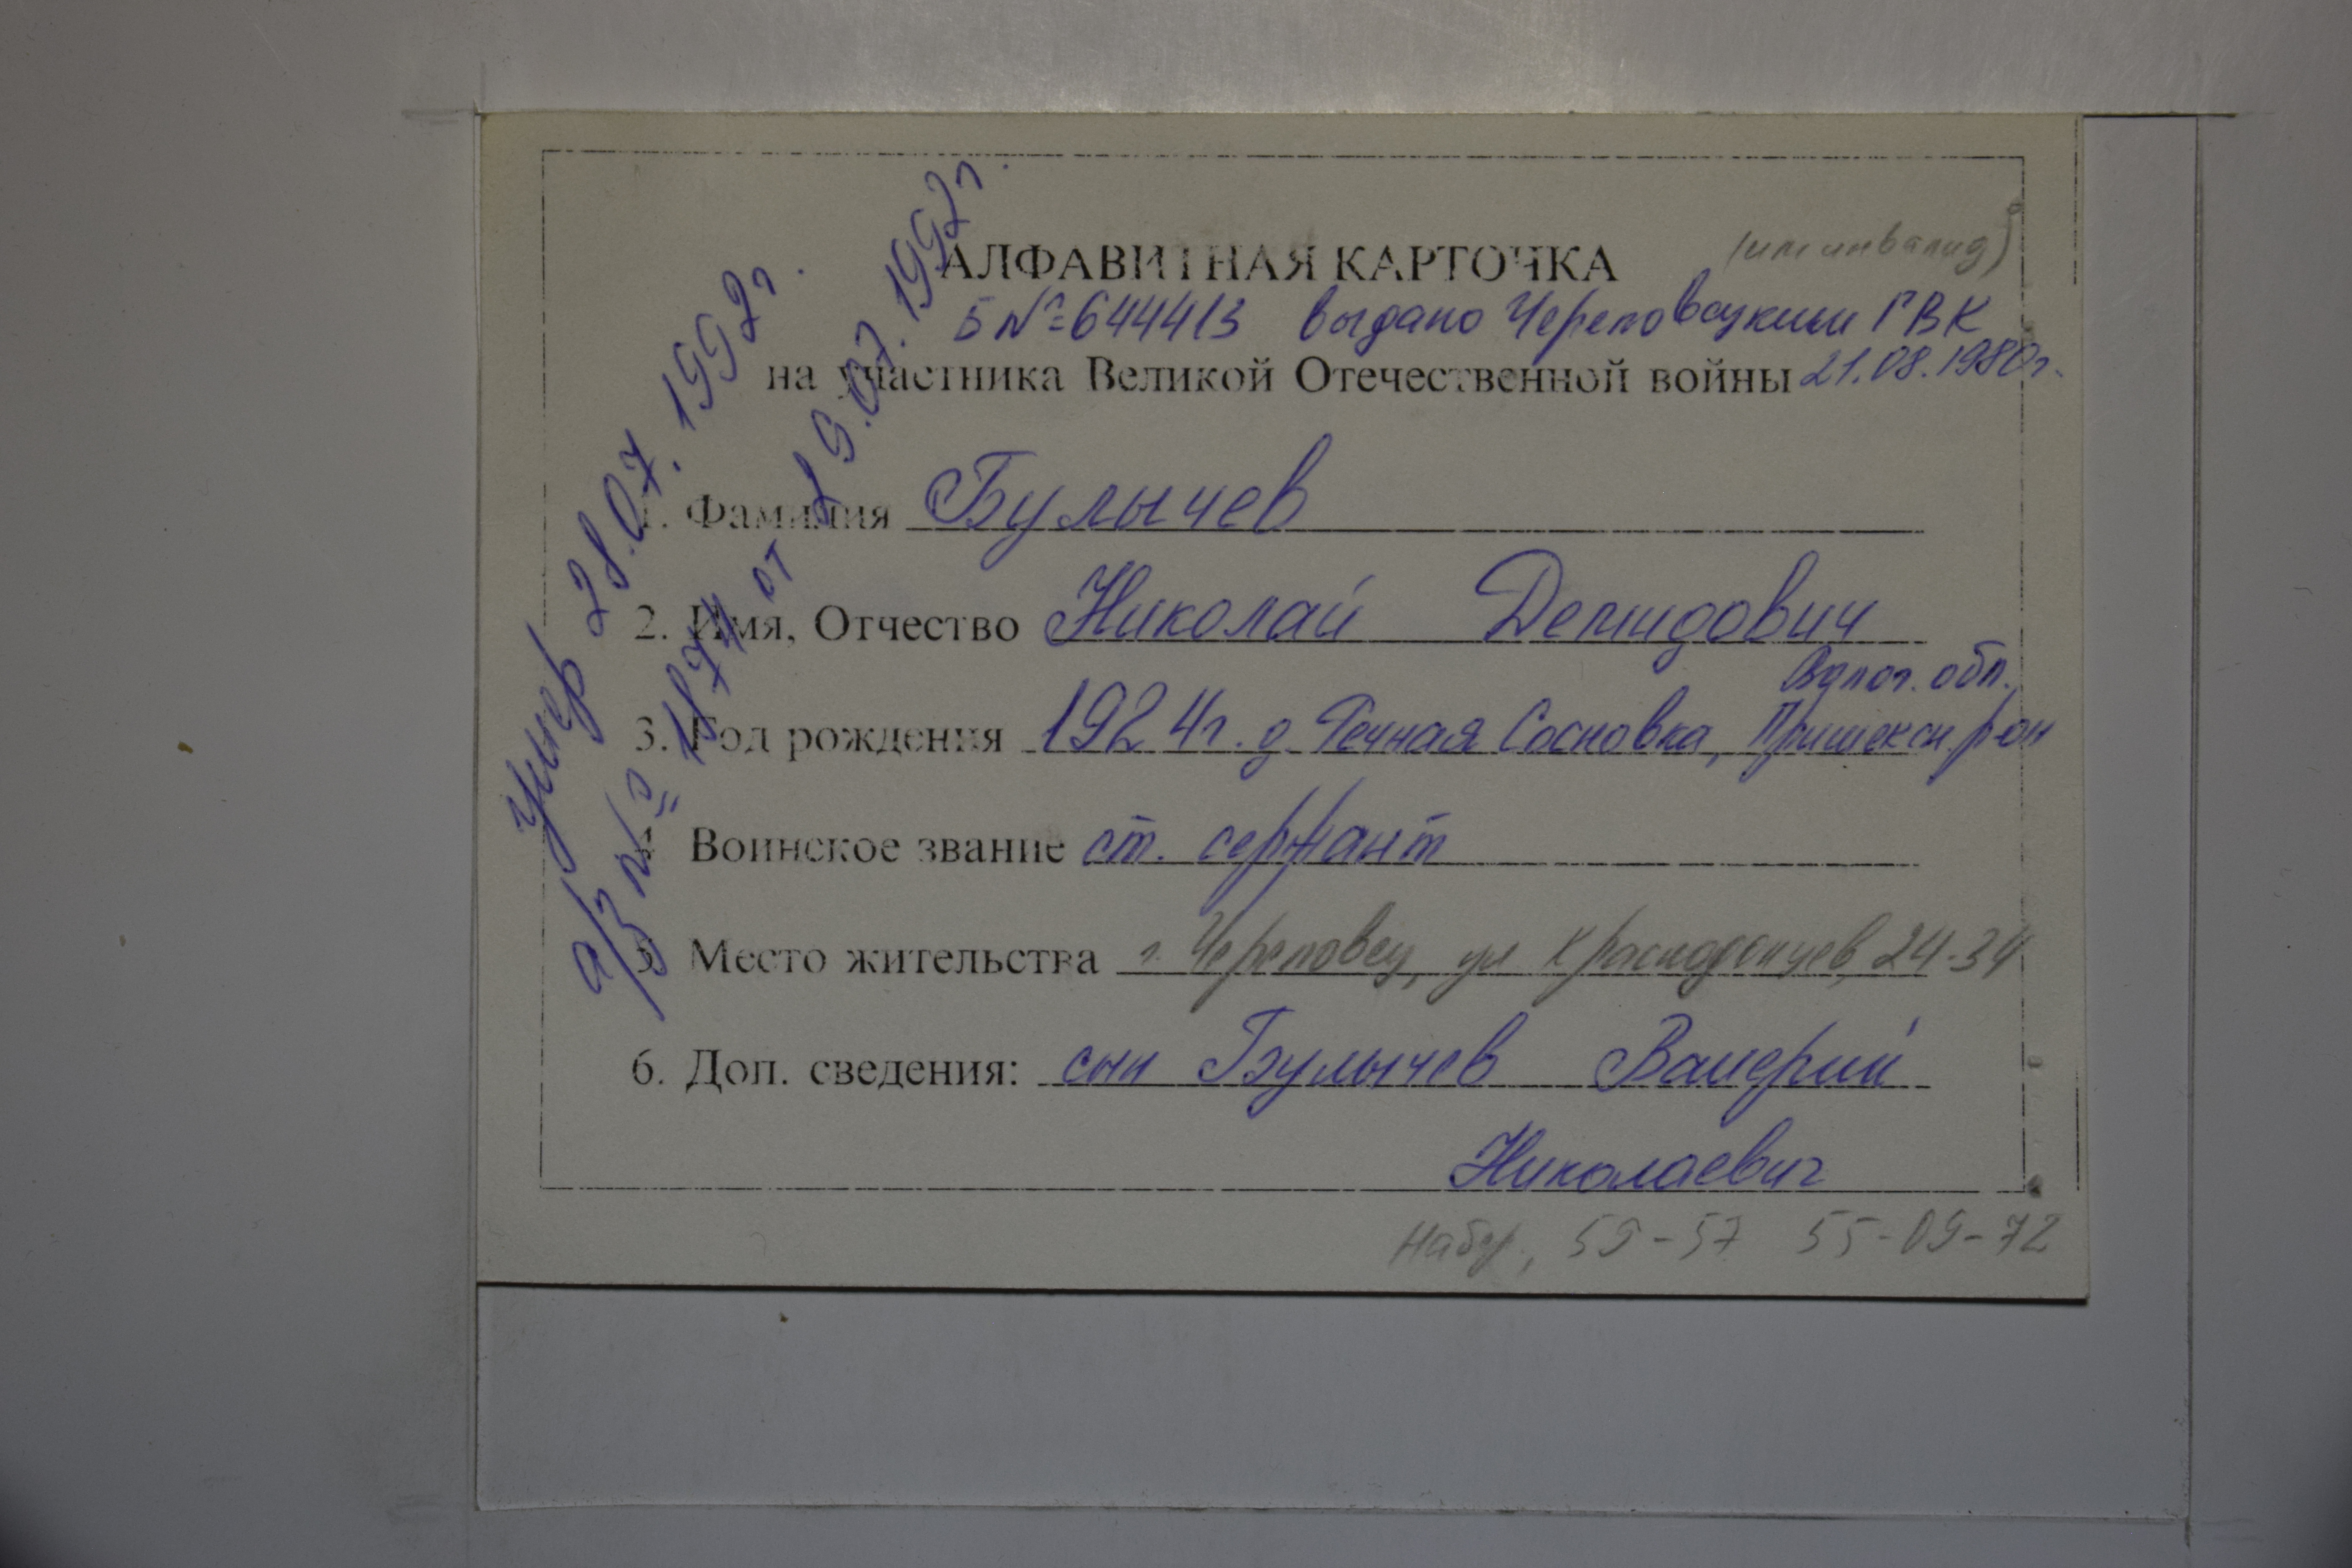 (им инвалид)
АЛФАВИТНАЯ КАРТОЧКА
Б № 644413 выдано Череповецким ГВК
на участника Великой Отечественной войны 21.08.1980г.
умер 28.07.1992г.
а/з № 1874 от 29.07.1992г.
1. Фамилия Булычев
2. Имя, Отчество Николай Демидович
Волог. обл.
3. Год рождения 1924г. д. Речная Сосновка, Пришексн. р-он
4. Воинское звание ст. сержант
5. Место жительства г. Череповец, ул Краснодонцев, 24-34
6. Доп. сведения: сын Булычев Валерий
Николаевич
59-57 55-09-72